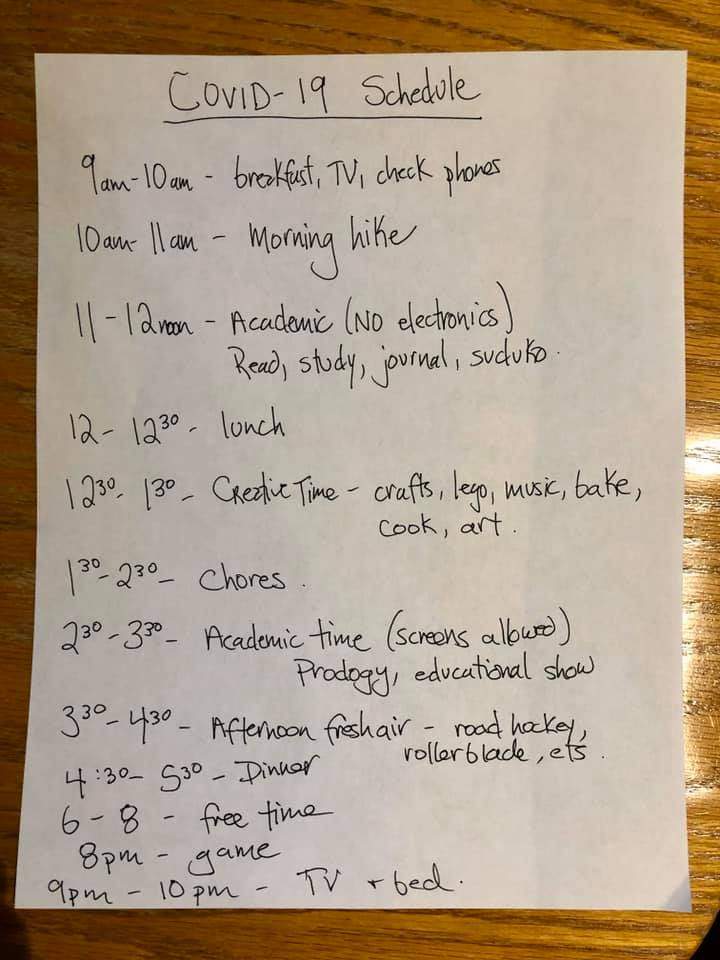 COVID-19 Schedule
9am-10am - breakfast, TV, check phones
10am-11am - Morning hike
11-12noon - Academic (NO electronics)
Read, study, journal, suduko.
12-12³⁰- lunch
12³⁰-1³⁰- Creative Time - crafts, lego, music, bake,
cook, art.
1³⁰-2³⁰- Chores.
2³⁰-3³⁰- Academic time (screens allowed)
Prodogy, educational show
3³⁰-4³⁰- Afternoon fresh air - road hockey,
rollerblade, ets.
4:30-5³⁰-Dinner
6-8 - free time
8pm - game
9pm-10pm - TV + bed.